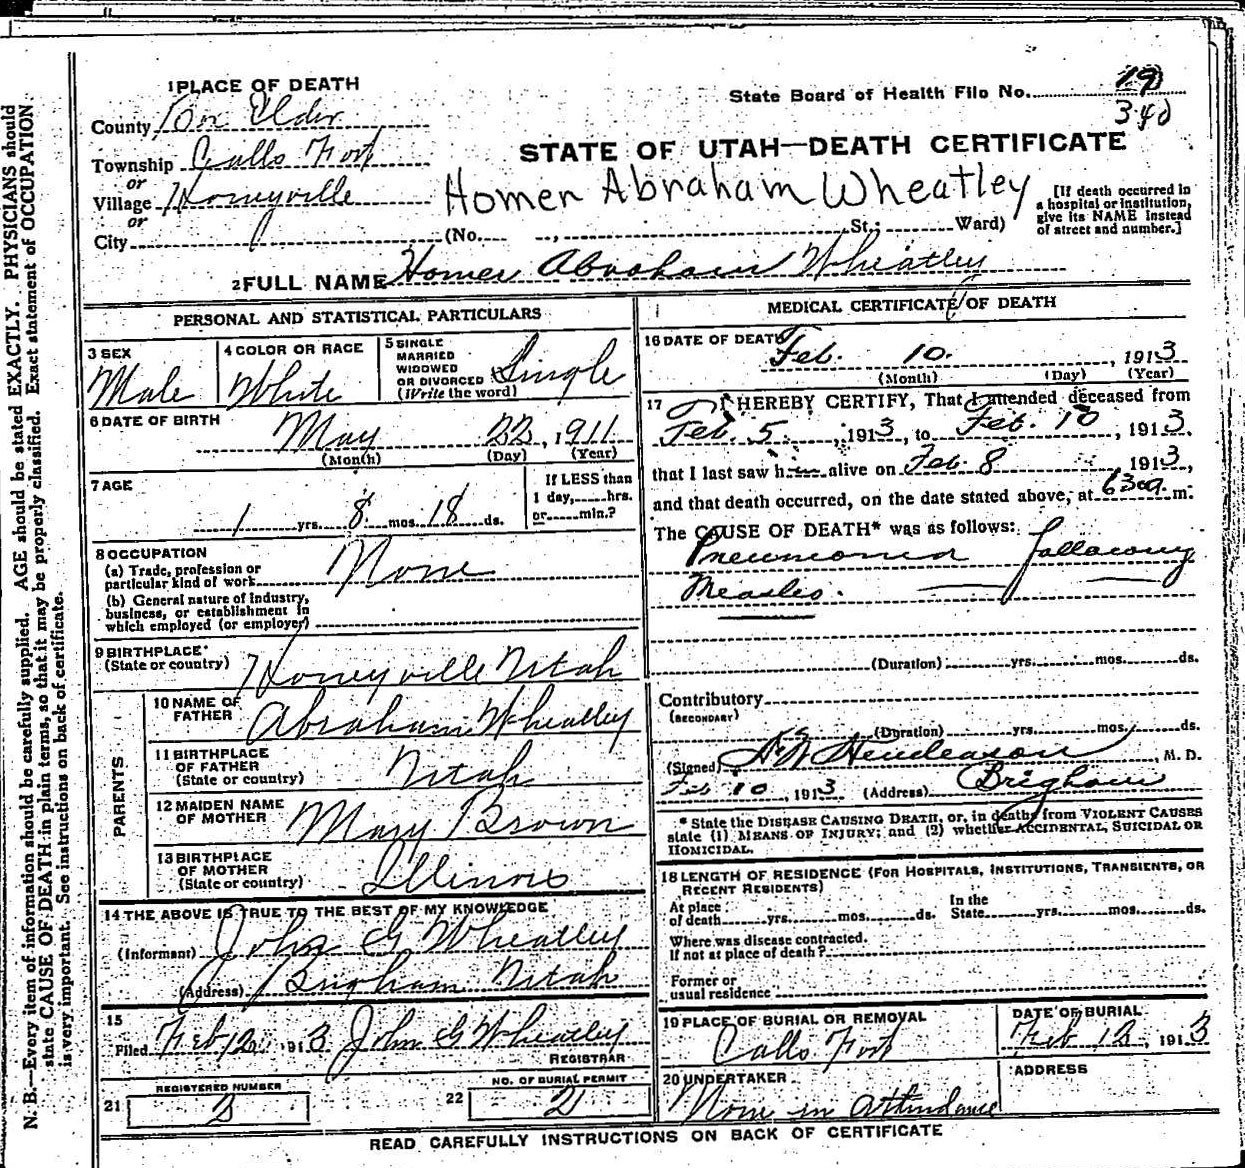 N. B.—Every item of information should be carefully supplied. AGE should be stated EXACTLY. PHYSICIANS should
state CAUSE OF DEATH in plain terms, so that it may be properly classified. Exact statement of OCCUPATION
is very important. See instructions on back of certificate.
1 PLACE OF DEATH
State Board of Health File No. 19
340
County Box Elder
Township Calls Fort
or
Village Honeyville
or
City
STATE OF UTAH—DEATH CERTIFICATE
Homer Abraham Wheatley
(No. , St.; Ward)
[If death occurred in
a hospital or institution,
give its NAME instead
of street and number.]
2 FULL NAME Homer Abraham Wheatley
PERSONAL AND STATISTICAL PARTICULARS
3 SEX
Male
4 COLOR OR RACE
White
5 SINGLE
MARRIED
WIDOWED
OR DIVORCED
(Write the word)
Single
6 DATE OF BIRTH
May 22, 1911
(Month) (Day) (Year)
7 AGE
1 yrs. 8 mos. 18 ds.
If LESS than
1 day, hrs.
or min.?
8 OCCUPATION
(a) Trade, profession or
particular kind of work None
(b) General nature of industry,
business, or establishment in
which employed (or employer)
9 BIRTHPLACE
(State or country) Honeyville Utah
PARENTS
10 NAME OF
FATHER Abraham Wheatley
11 BIRTHPLACE
OF FATHER
(State or country) Utah
12 MAIDEN NAME
OF MOTHER Mary Brown
13 BIRTHPLACE
OF MOTHER
(State or country) Illinois
14 THE ABOVE IS TRUE TO THE BEST OF MY KNOWLEDGE
(Informant) John G Wheatley
(Address) Brigham Utah
15
Filed Feb 12 1913 John G Wheatley
REGISTRAR
REGISTERED NUMBER
21 2
NO. OF BURIAL PERMIT
22 2
MEDICAL CERTIFICATE OF DEATH
16 DATE OF DEATH
Feb. 10. , 1913
(Month) (Day) (Year)
17 I HEREBY CERTIFY, That I attended deceased from
Feb. 5 , 1913, to Feb. 10 , 1913.
that I last saw him alive on Feb. 8 , 1913,
and that death occurred, on the date stated above, at 630 a. m.
The CAUSE OF DEATH* was as follows:
Pneumonia following
Measles.
(Duration) yrs. mos. ds.
Contributory
(SECONDARY)
(Duration) yrs. mos. ds.
(Signed) Henderson , M. D.
Feb 10 , 1913 (Address) Brigham
* State the DISEASE CAUSING DEATH, or, in deaths from VIOLENT CAUSES
state (1) MEANS OF INJURY; and (2) whether ACCIDENTAL, SUICIDAL OR
HOMICIDAL.
18 LENGTH OF RESIDENCE (FOR HOSPITALS, INSTITUTIONS, TRANSIENTS, OR
RECENT RESIDENTS)
At place
of death yrs. mos. ds.
In the
State yrs. mos. ds.
Where was disease contracted.
If not at place of death?
Former or
usual residence
19 PLACE OF BURIAL OR REMOVAL
Calls Fort
DATE OF BURIAL
Feb 12, 1913
20 UNDERTAKER
None in attendance
ADDRESS
READ CAREFULLY INSTRUCTIONS ON BACK OF CERTIFICATE